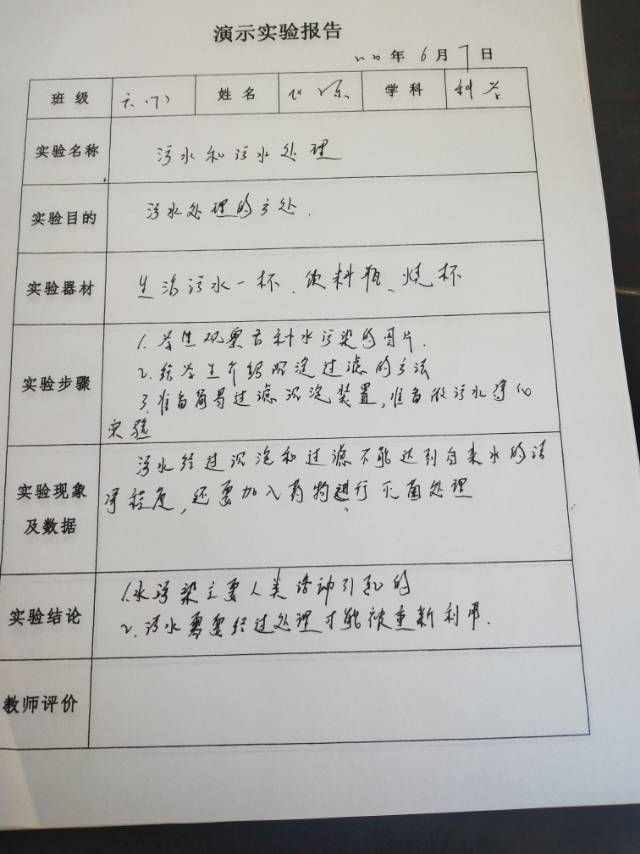 演示实验报告
年 6 月 7 日
班级 六 姓名 学科 科学
实验名称 污水和污水处理
实验目的 污水处理的
实验器材 生活污水一杯、饮料瓶、烧杯
1. 学生观察各种水污染的图片.
2. 给学生介绍沉淀过滤的方法
实验步骤 3. 准备简易过滤沉淀装置,准备做污水净化
实验
污水经过沉淀和过滤不能达到自来水的洁
实验现象 净程度,还要加入药物进行灭菌处理
及数据
1. 水污染主要人类活动引起的
实验结论 2. 污水需要经过处理才能被重新利用.
教师评价